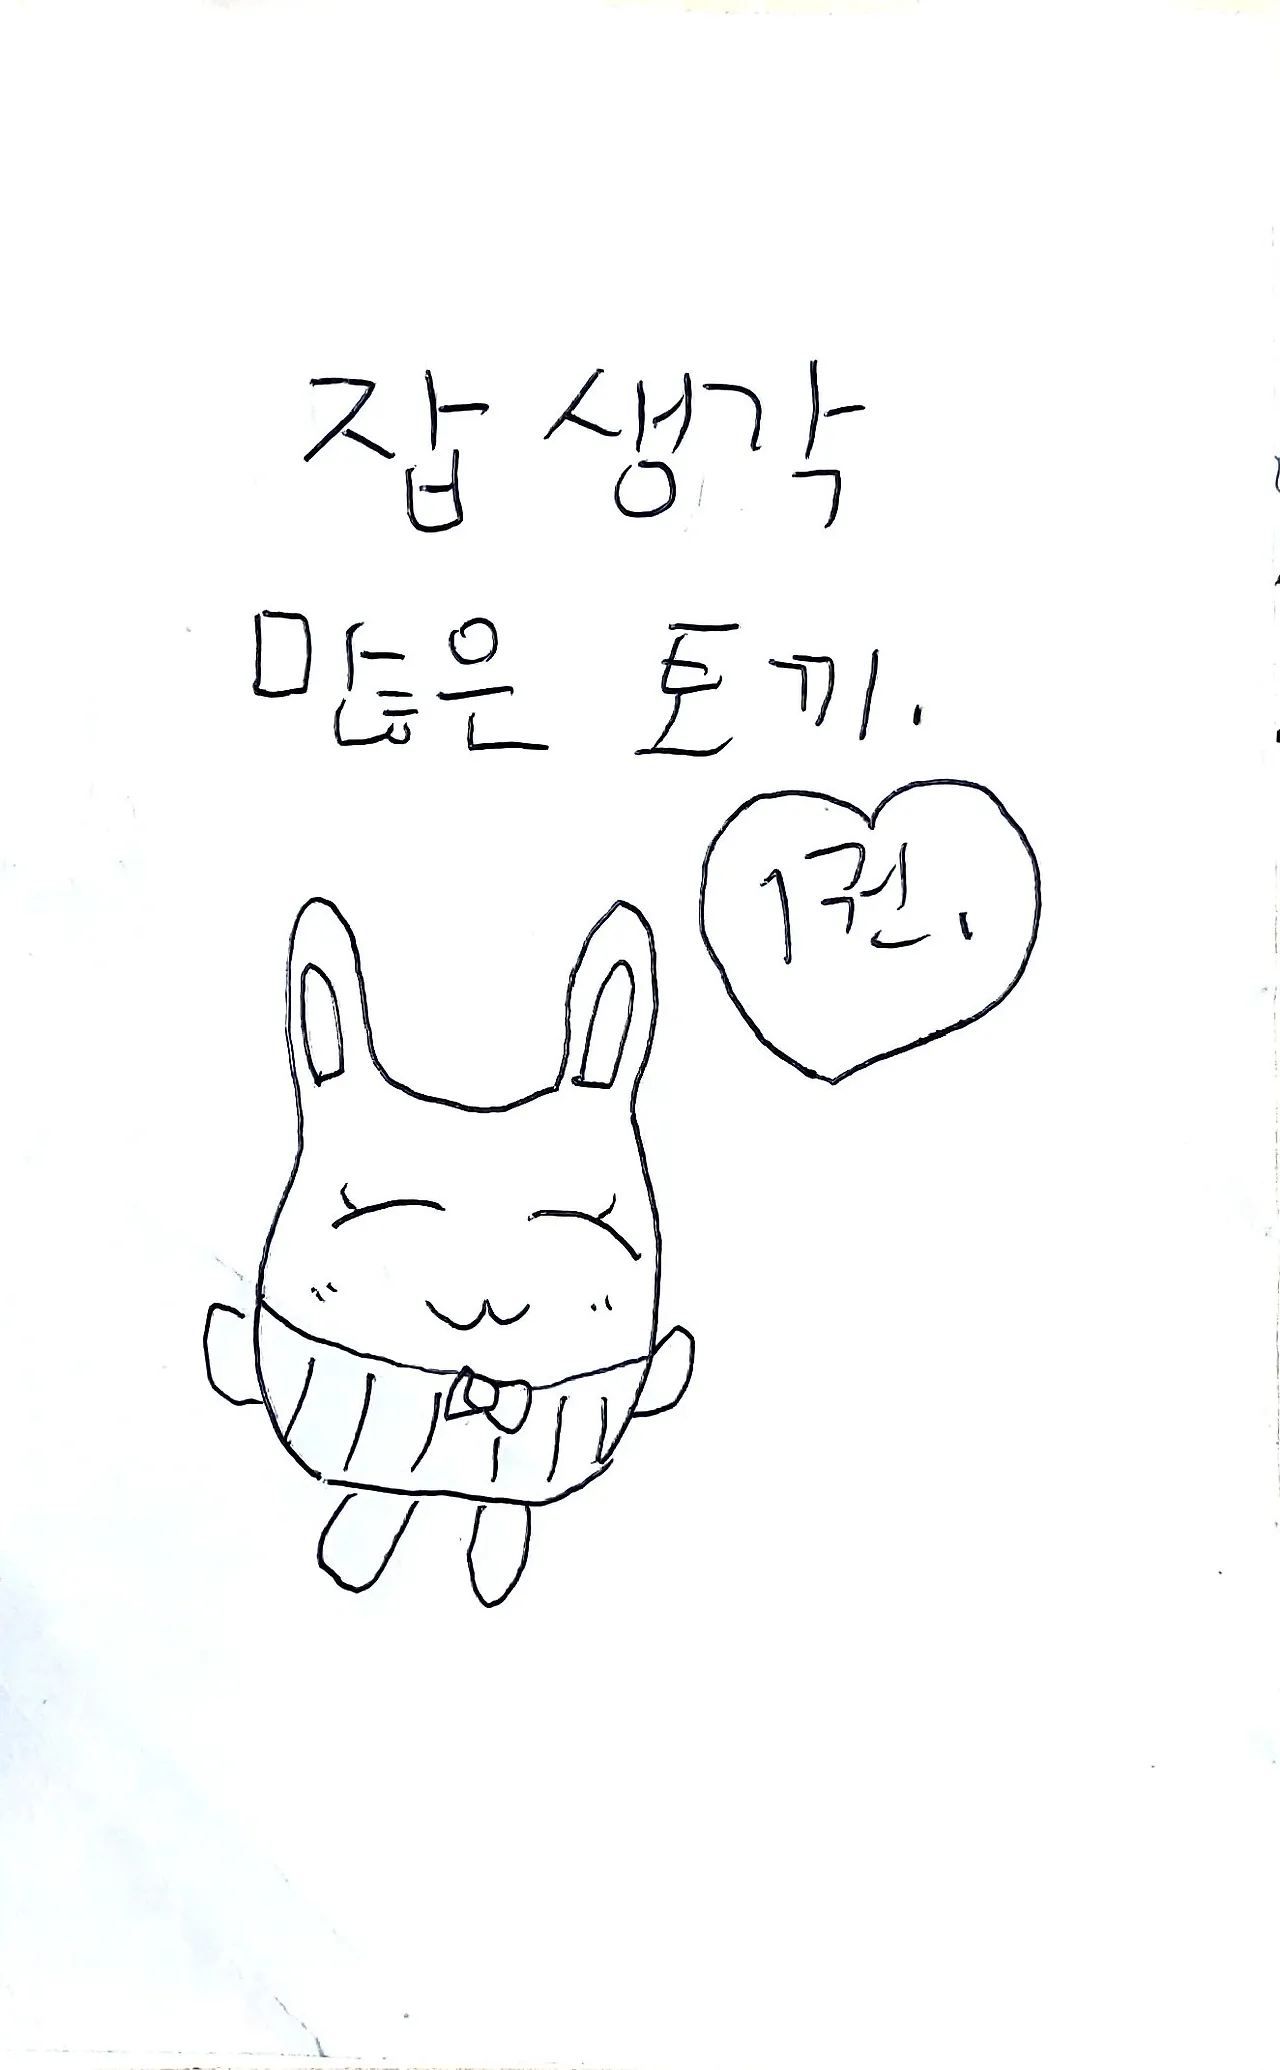 잡 생각
많은 토끼.
1권.